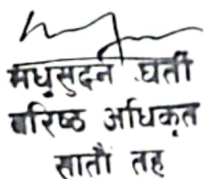 मधुसुदन घर्ती
बरिष्ठ अधिकृत
सातौं तह